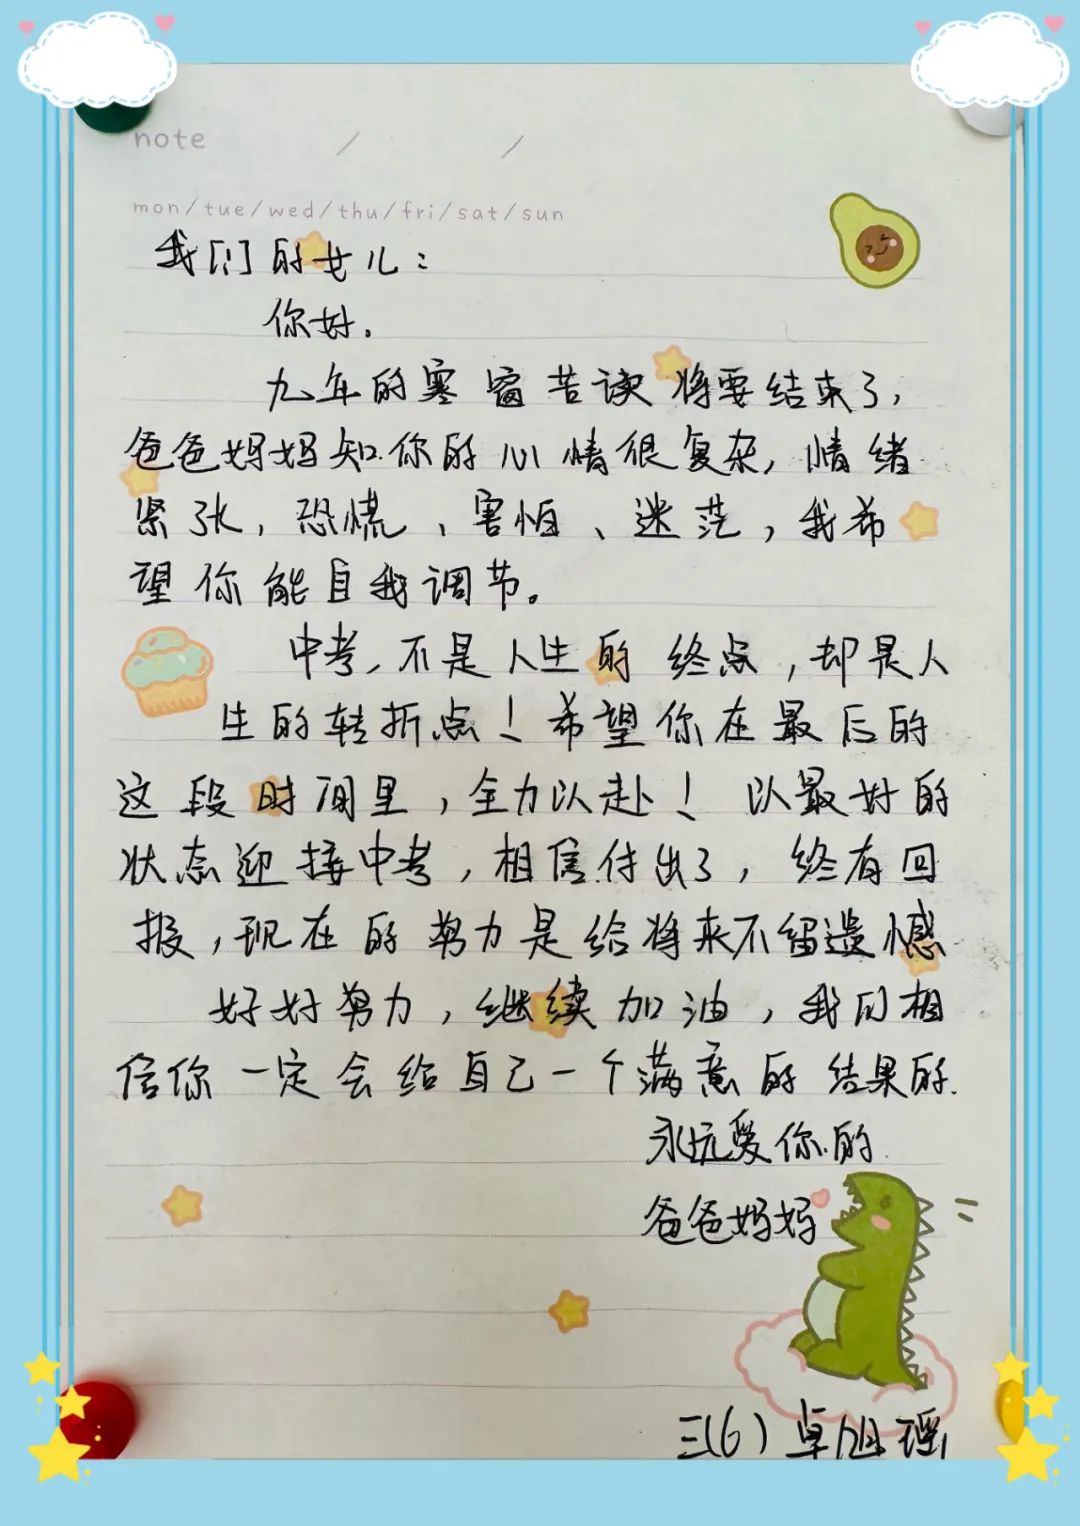 note / /
mon/tue/wed/thu/fri/sat/sun
我们的女儿：
你好。
九年的寒窗苦读将要结束了，
爸爸妈妈知你的心情很复杂，情绪
紧张，恐慌、害怕、迷茫，我希
望你能自我调节。
中考，不是人生的终点，却是人
生的转折点！希望你在最后的
这段时间里，全力以赴！以最好的
状态迎接中考，相信付出了，终有回
报，现在的努力是给将来不留遗憾
好好努力，继续加油，我们相
信你一定会给自己一个满意的结果的.
永远爱你的.
爸爸妈妈
三(6)卓旭瑶